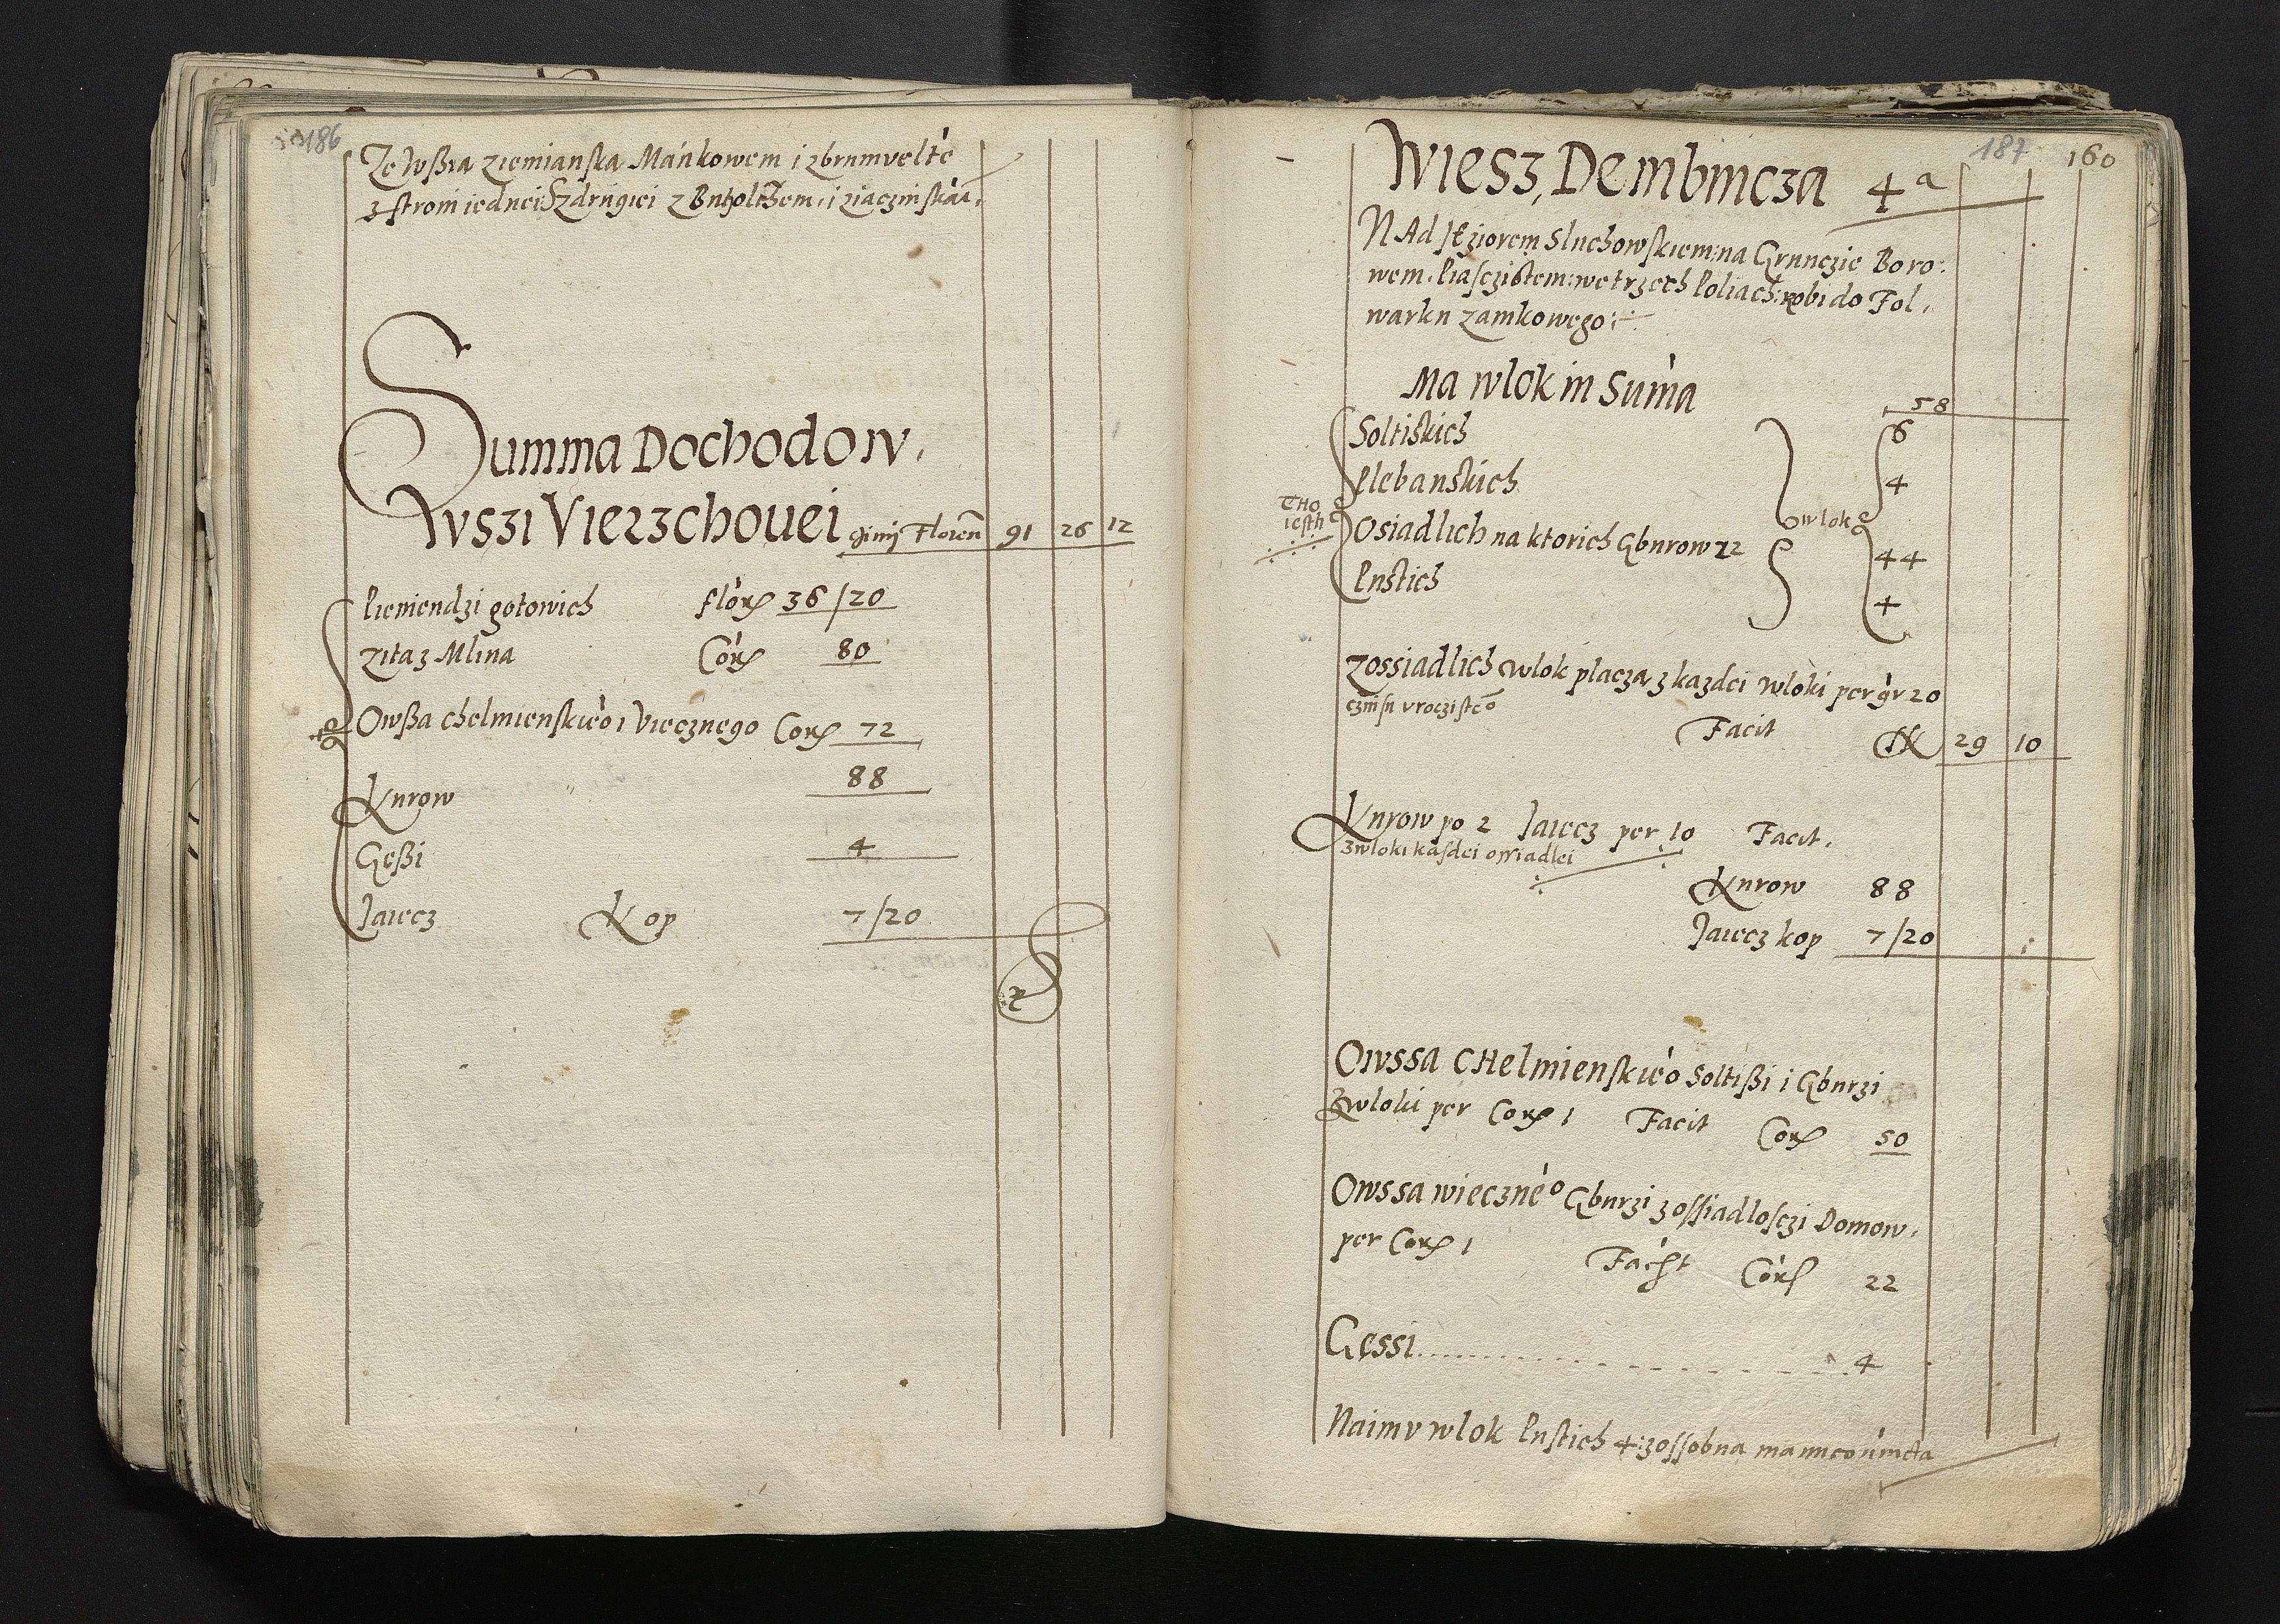 186
Ze Wßią Ziemianską Mańkowem i zbrunvelte
z stroni iednei: Z drugiei z Buchholthem i
Summa Dochodow.
Wszi Vierzchouei Floren 91 26 12
Pieniendzi gotowich flor 36/20
Zita z Mlina Cor 80
Owßa chelmienskieo i Viecznego Cor 72
Kurow 88
Gęßi 4
Jaiecz Kop 7/20
187 160
Wiesz, Dembnicza 4ª
NAd JEziorem Sluchowskiem: na Grunczie Boro:
wem. Piasczistem: we trzech Poliach: robi do Fol,
warku zamkowego:
Ma wlok in Suma
58
Soltiskich 6
Plebanskich 4
THO
iesth
wlok
Osiadlich na ktorich Gburow 22 44
Pustich 4
Zossiadlich wlok placzą z kazdei wloki per gr 20
czinsu vroczisteo
Facit 29 10
Kurow po 2 Jaiecz per 10 Facit.
z wloki kasdei ossiadlei
Kurow 88
Jaiecz kop 7/20
Owssa CHelmienskieo Soltißi i Gburzi
Z wloki per Cor 1 Facit Cor 50
Owssa wieczneo Gburzi z ossiadlosczi Domow.
per Cor 1 Facit Cor 22
Gęssi 4
Naimu wlok Pustich 4: zossobna